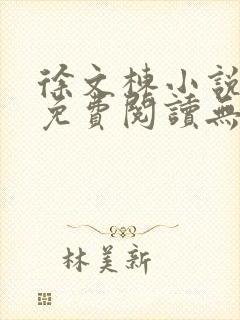 徐文棟小說
免費閱讀無
林美新